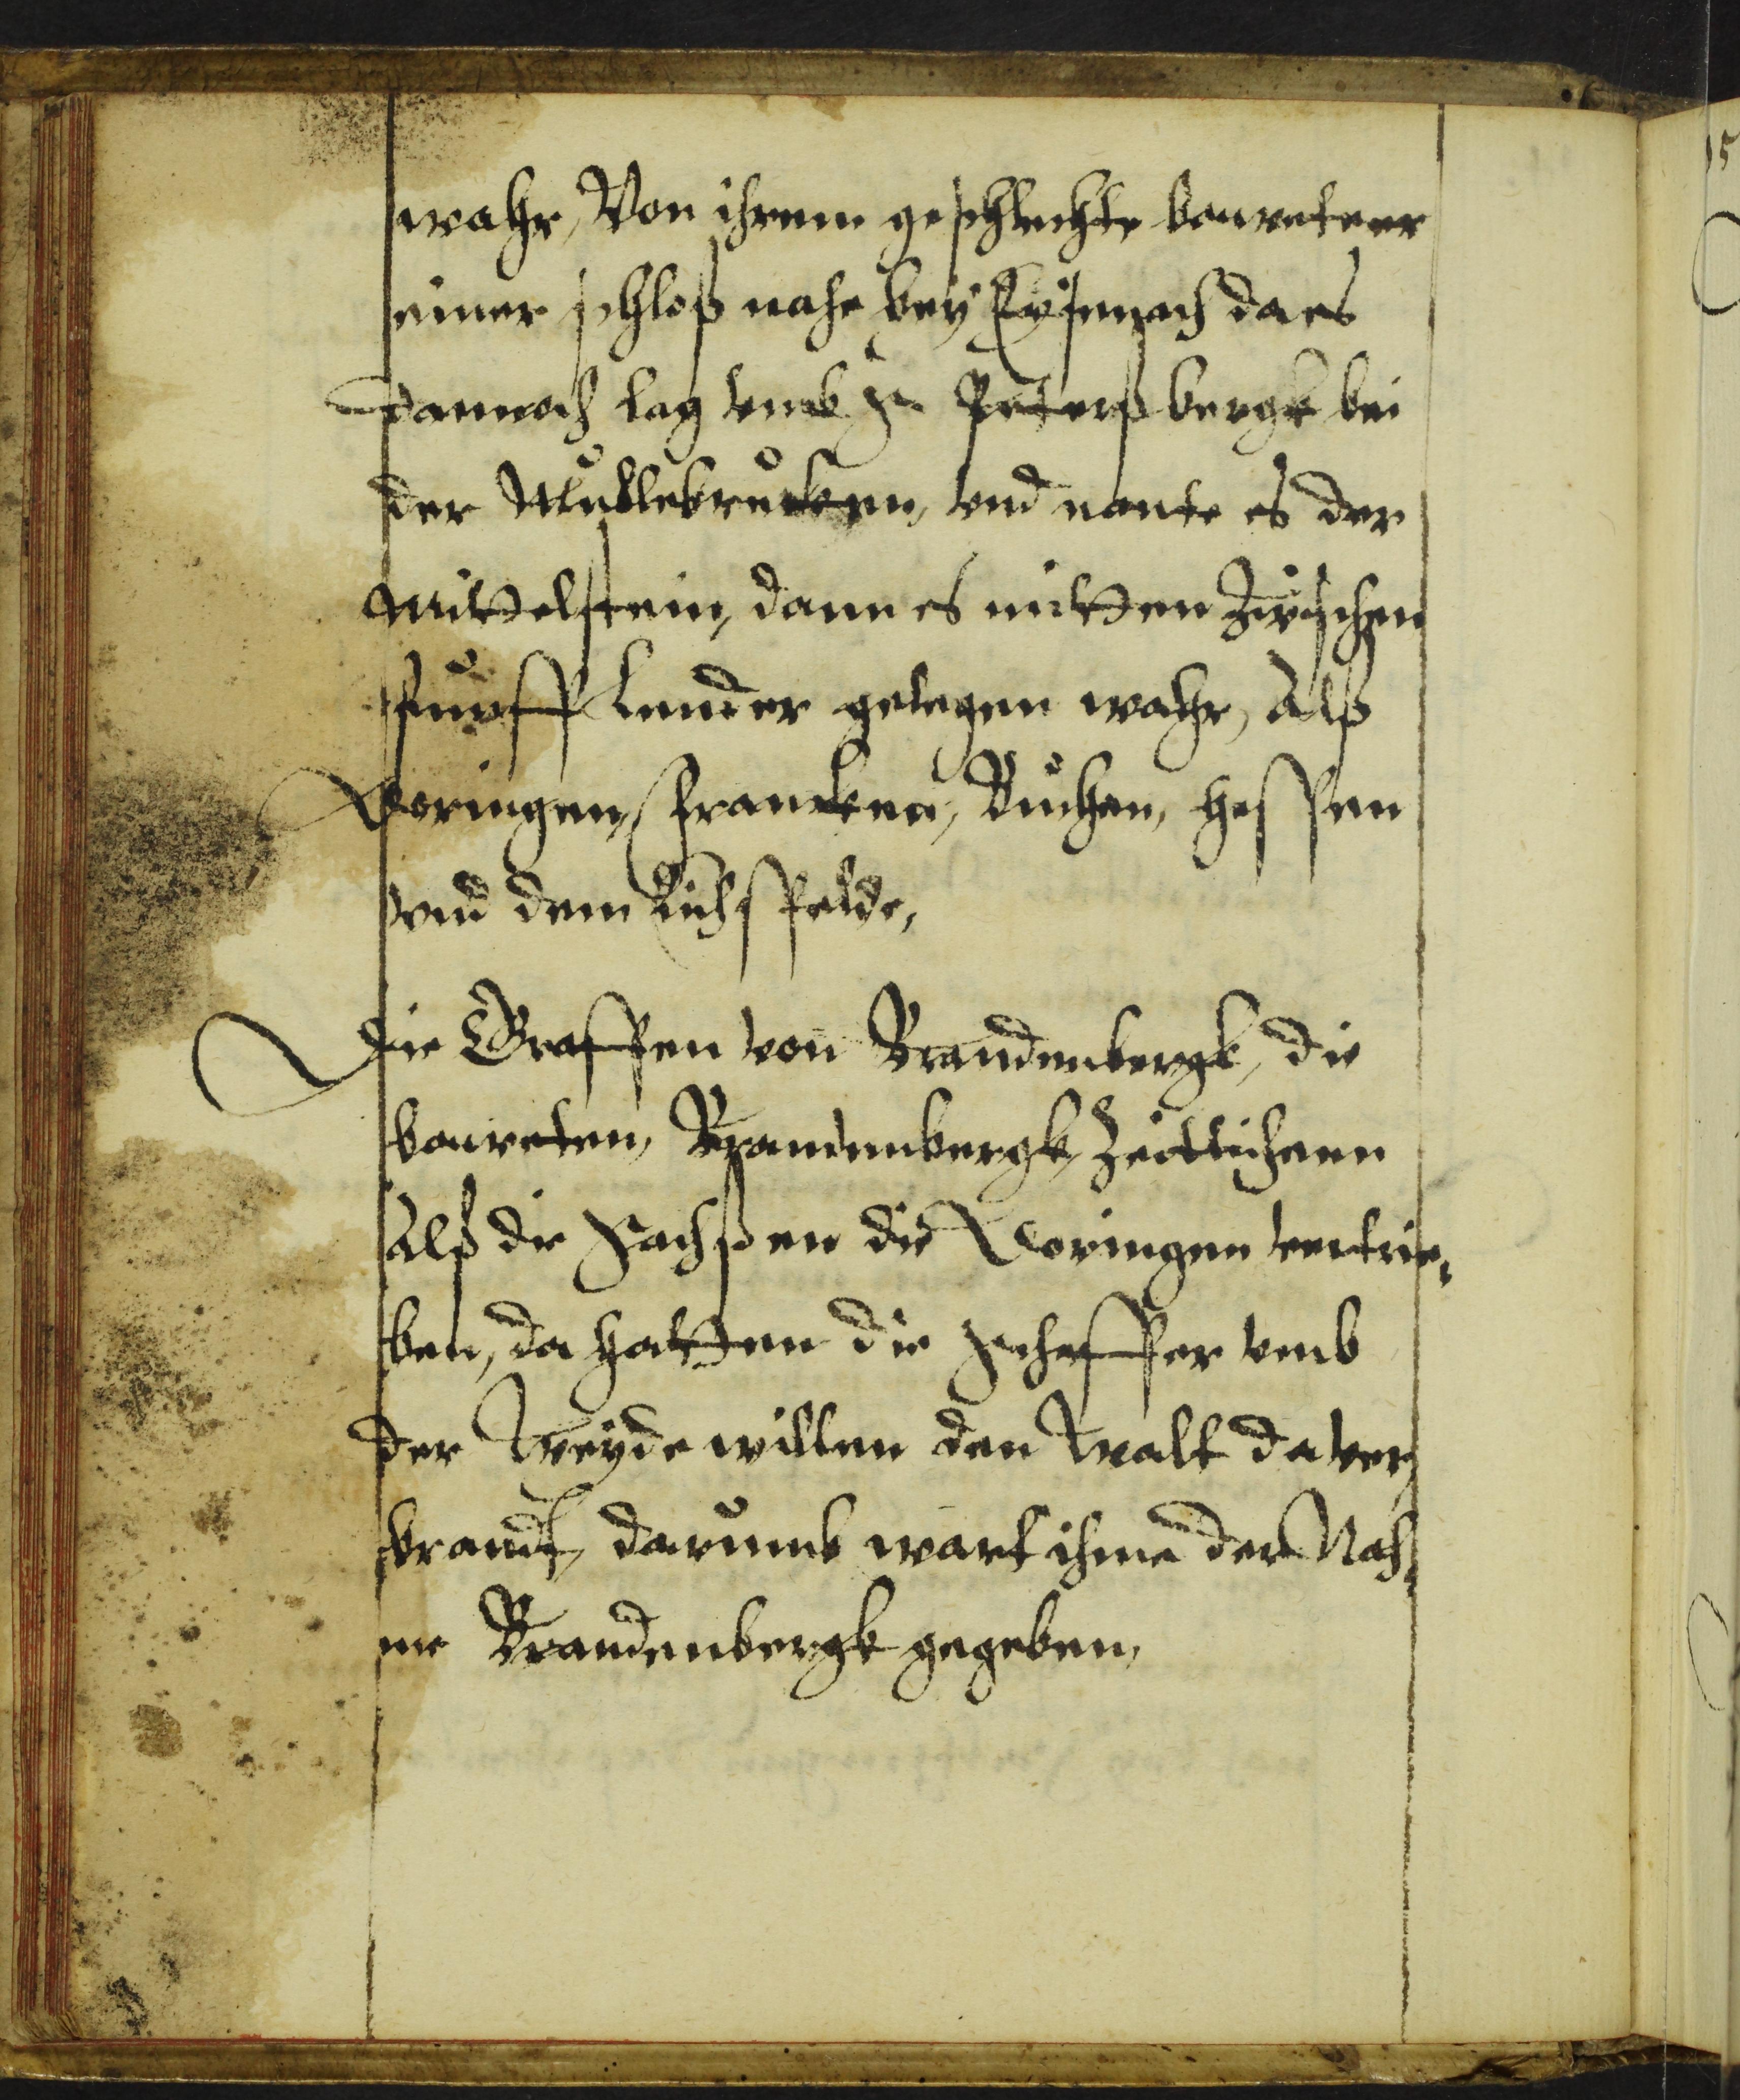 wahr, Von ihrem geschlechte bauweten er
einer schloß nahe bey Eysenach da es
dannoch lag vmb S. Peterßbergk bei
der Mühlebrücken, vnd nante es der
Mittelstein, dann es mitten zwischen
fünff Lender gelegen wahr, Alß
Doringen, Francken, Buchen, Hessen
vnd dem Eichsfelde,
Die Graffen von Brandenbergk, die
bauweten, Brandenbergk, Zeittlichenn
Alß die Sachßen die Doringen vertrie,
ben, da hatten die Scheffer vmb
der Weyde willen den Walt da ver,
brandt, darumb wart ihme der Nah,
me Brandenbergk gegeben,
15